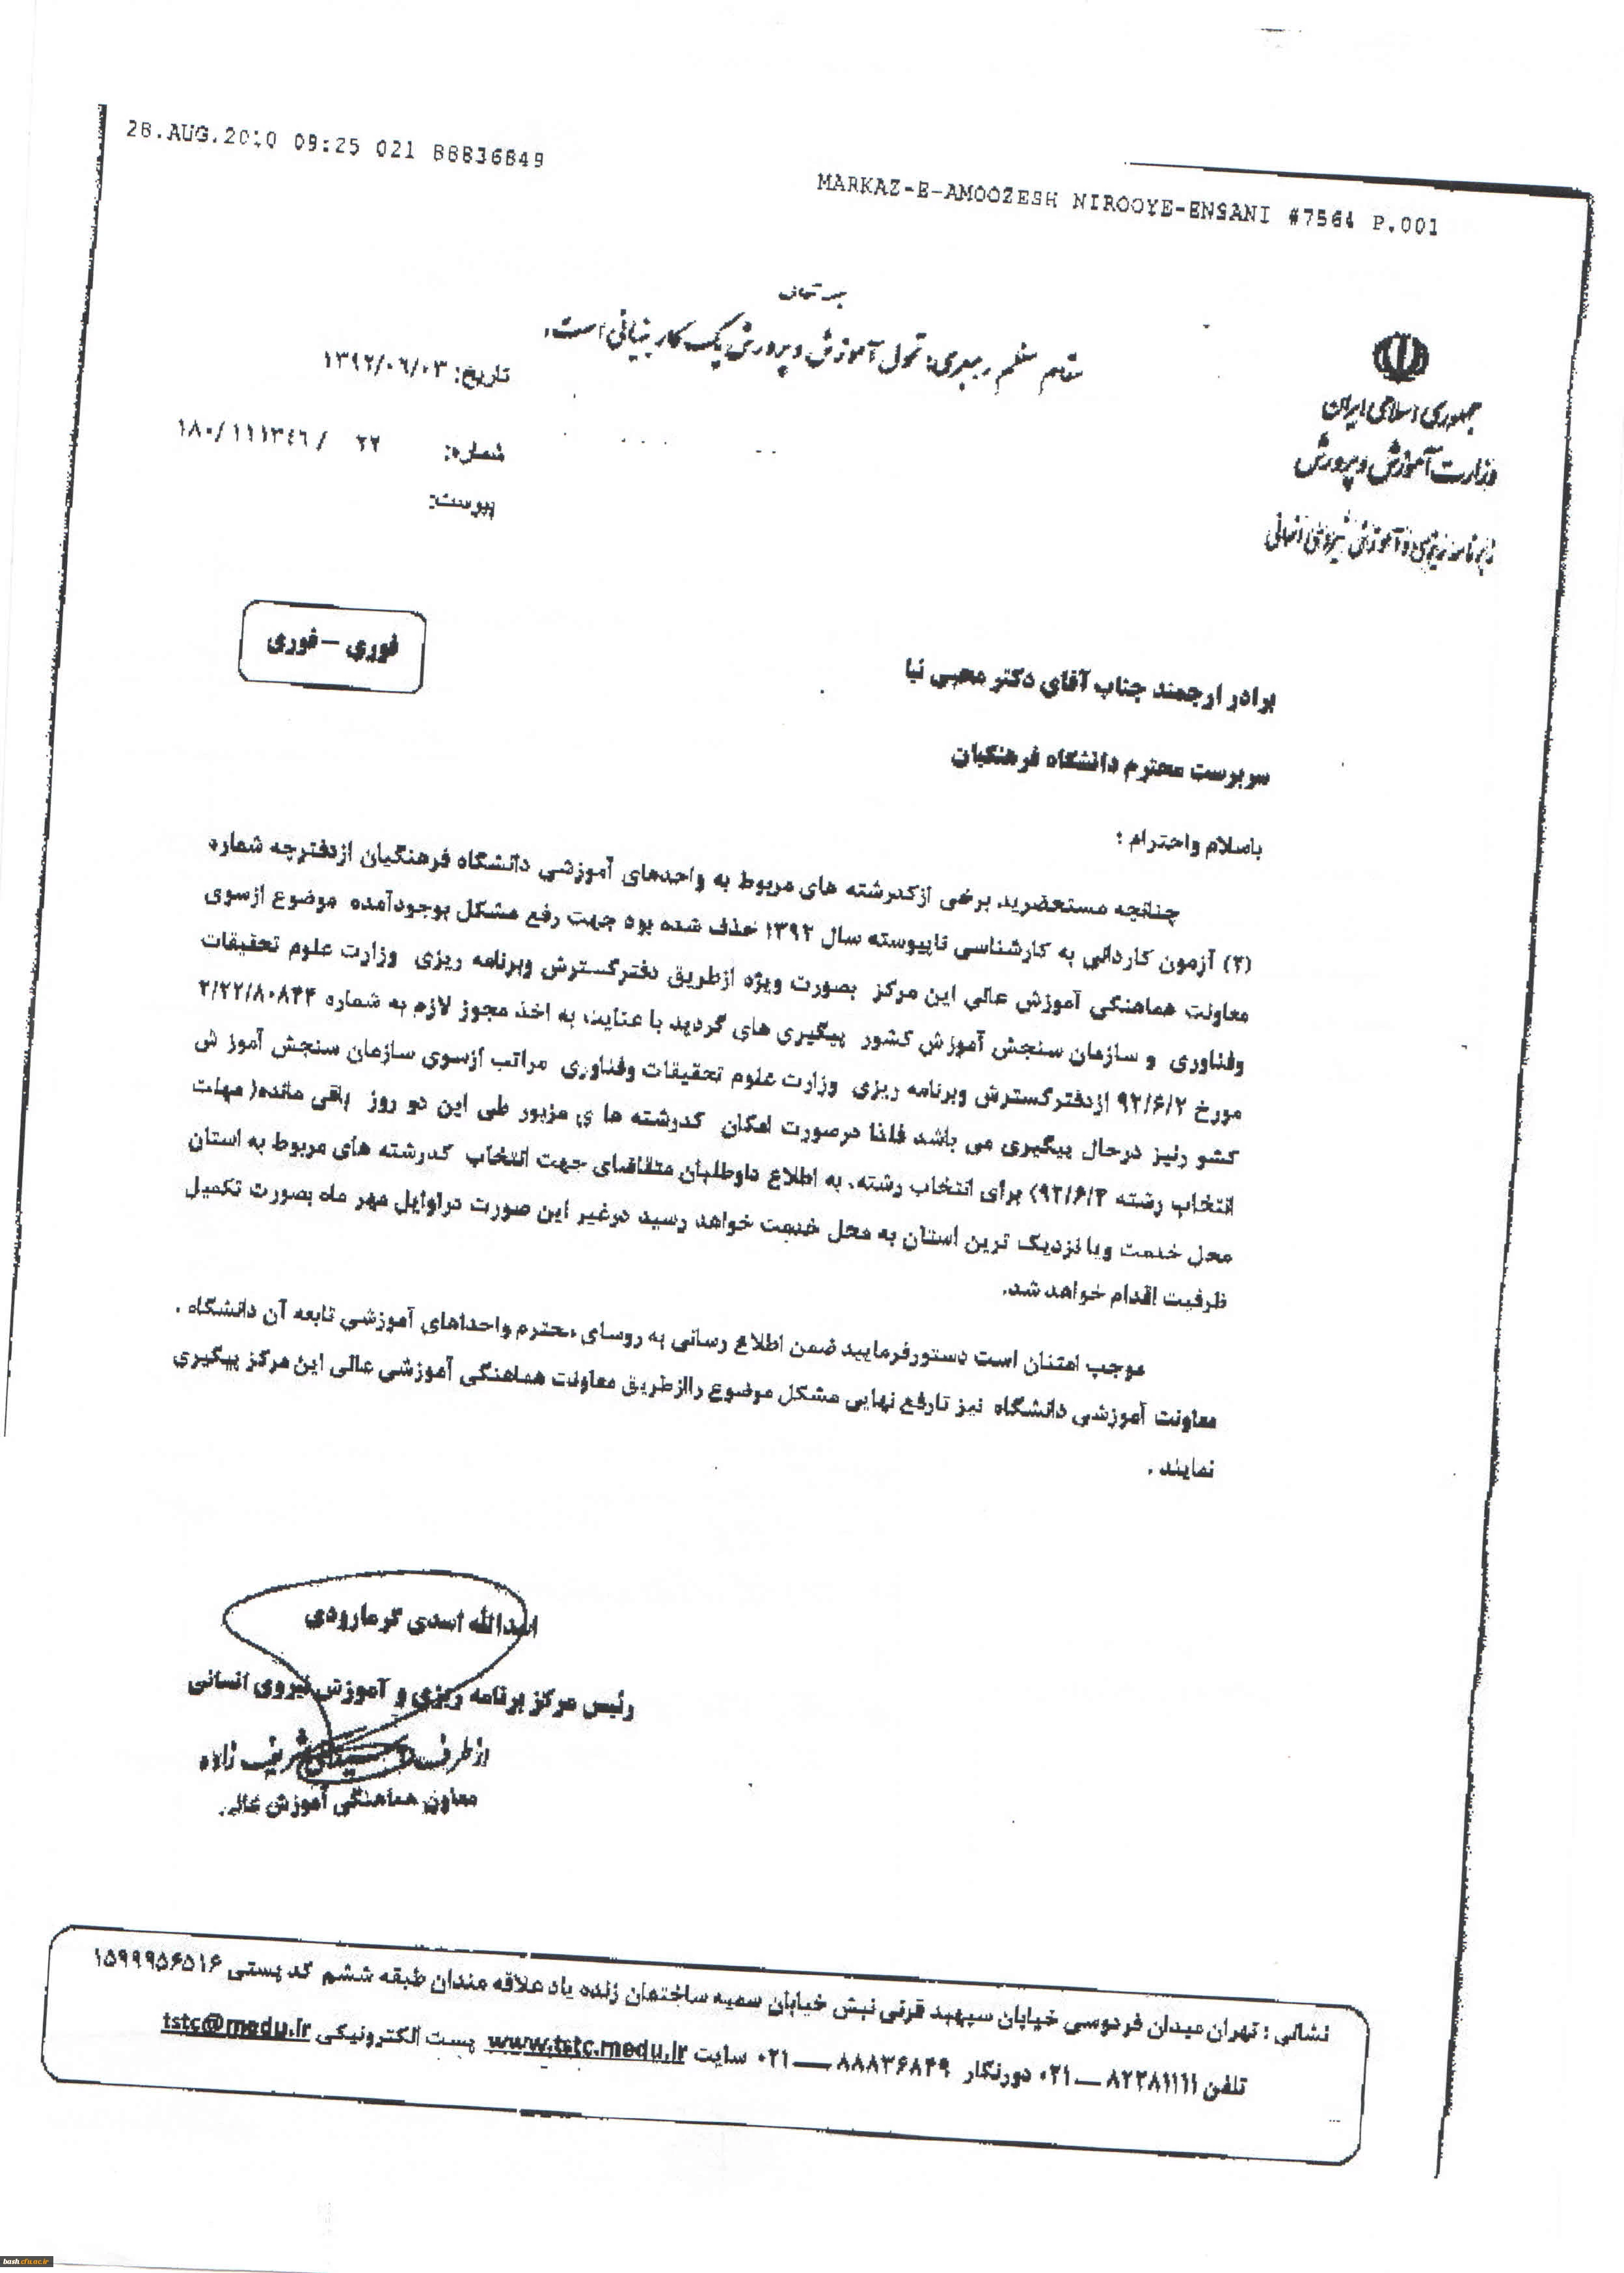 28.AUG.2010 09:25 021 88836849
MARKAZ-E-AMOOZESH NIROOYE-ENSANI #7564 P.001
مقام معظم رهبری: تحول آموزش و پرورش یک کار بنیانی است.
جمهوری اسلامی ایران
وزارت آموزش و پرورش
تاریخ: ۱۳۹۲/۰۶/۰۳
شماره: ۱۸۰/۱۱۱۳۴۶/ ۲۲
پیوست:
فوری – فوری
برادر ارجمند جناب آقای دکتر محبی نیا
سرپرست محترم دانشگاه فرهنگیان
باسلام واحترام :
چنانچه مستحضرید برخی ازکدرشته های مربوط به واحدهای آموزشی دانشگاه فرهنگیان ازدفترچه شماره
(۲) آزمون کاردانی به کارشناسی ناپیوسته سال ۱۳۹۲ حذف شده بود جهت رفع مشکل بوجودآمده موضوع ازسوی
معاونت هماهنگی آموزش عالی این مرکز بصورت ویژه ازطریق دفترگسترش وبرنامه ریزی وزارت علوم تحقیقات
وفناوری و سازمان سنجش آموزش کشور پیگیری های گردید با عنایت به اخذ مجوز لازم به شماره ۲/۲۲/۸۰۸۲۴
مورخ ۹۲/۶/۲ ازدفترگسترش وبرنامه ریزی وزارت علوم تحقیقات وفناوری مراتب ازسوی سازمان سنجش آموز ش
کشو رنیز درحال پیگیری می باشد فلذا درصورت امکان کدرشته ها ی مزبور طی این دو روز باقی مانده( مهلت
انتخاب رشته ۹۲/۶/۴) برای انتخاب رشته، به اطلاع داوطلبان متقاضای جهت انتخاب کدرشته های مربوط به استان
محل خدمت ویا نزدیک ترین استان به محل خدمت خواهد رسید درغیر این صورت دراوایل مهر ماه بصورت تکمیل
ظرفیت اقدام خواهد شد.
موجب امتنان است دستورفرمایید ضمن اطلاع رسانی به روسای محترم واحداهای آموزشی تابعه آن دانشگاه .
معاونت آموزشی دانشگاه نیز تارفع نهایی مشکل موضوع راازطریق معاونت هماهنگی آموزشی عالی این مرکز پیگیری
نمایند .
اسدالله اسدی گرمارودی
رئیس مرکز برنامه ریزی و آموزش نیروی انسانی
ازطرف شریف زاده
معاون هماهنگی آموزش عالی
نشانی : تهران میدان فردوسی خیابان سپهبد قرنی نبش خیابان سمیه ساختمان زنده یاد علاقه مندان طبقه ششم کد پستی ۱۵۹۹۹۵۶۵۱۶
تلفن ۸۲۲۸۱۱۱۱ – ۰۲۱ دورنگار ۸۸۸۳۶۸۴۹ – ۰۲۱ سایت www.tstc.medu.ir پست الکترونیکی tstc@medu.ir
bash.cfu.ac.ir